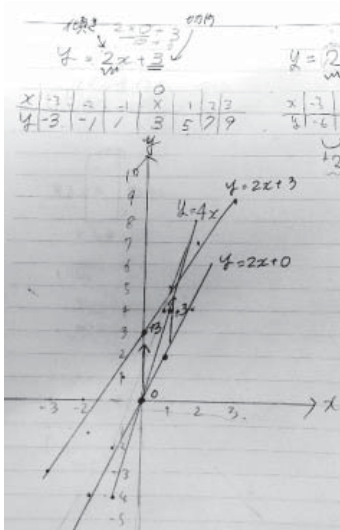 2×0+3
y = 2x+3
y = 2
x -3 -2 -1 0 1 2 3
y -3 -1 1 3 5 7 9
x -3
y -6
y
10
9
8
7
6
5
4
3
2
1
y=2x+3
y=4x
y=2x+0
+3
+3
0
-3 -2 1 2 3 x
-3
-4
-5